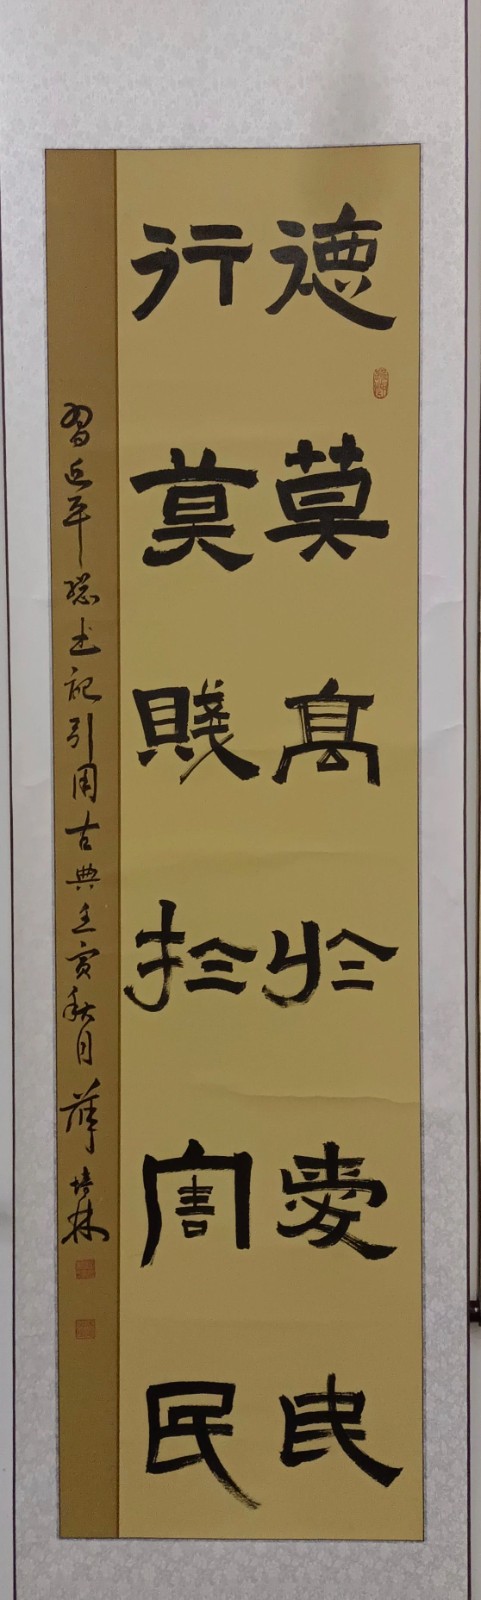 德莫高於愛民
行莫賤於害民
習近平總书記引用古典壬寅秋月薛培林